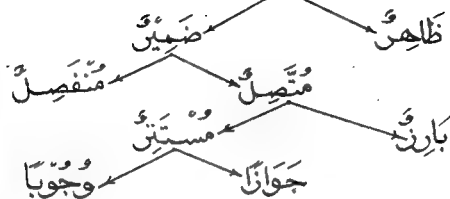 ظَاهِرٌ ضَمِيْرٌ
مُتَّصِلٌ مُنْفَصِلٌ
بَارِزٌ مُسْتَتِرٌ
جَوَازًا وُجُوْبًا